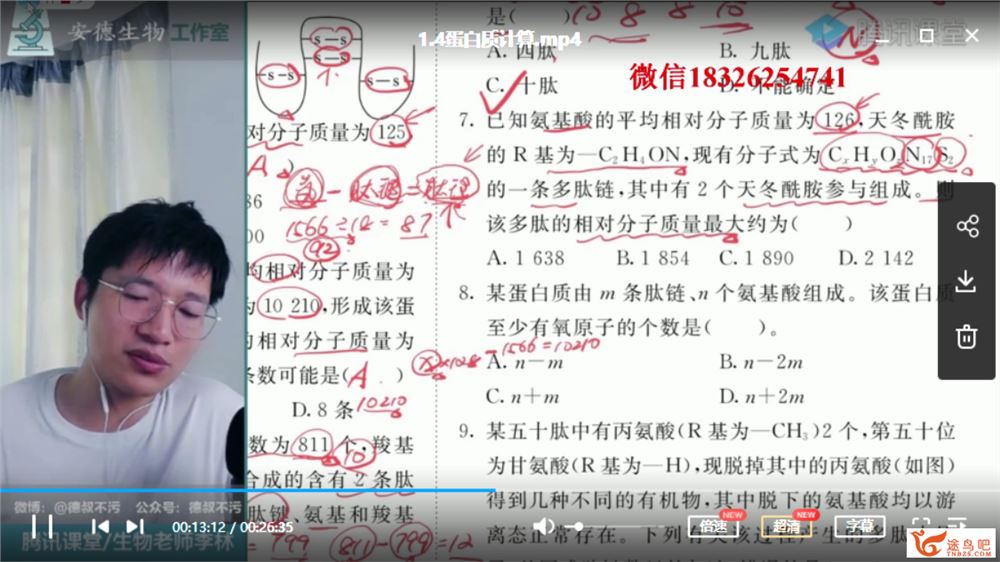 安德生物 工作室
1.4蛋白质计算.mp4
腾讯课堂
微信18326254741
s—s
s—s
s—s
s—s
对分子质量为 125
A )
86
氨 — 肽键 = 肽链
1566÷18=87
00
92
均相对分子质量为
为 10 210,形成该蛋
的相对分子质量为
条数可能是( A )
D. 8 条
10210
数为 811 个,羧基
10
合成的含有 2 条肽
肽键、氨基和羧基
= 799 811-799=12
是( ) 10 8 8 10
A. 四肽 B. 九肽
C. 十肽 D. 不能确定
7. 已知氨基酸的平均相对分子质量为 126,天冬酰胺
的 R 基为—C₂H₄ON,现有分子式为 CₓHᵧO_zN₁₇S₂
的一条多肽链,其中有 2 个天冬酰胺参与组成。则
该多肽的相对分子质量最大约为( )
A. 1 638 B. 1 854 C. 1 890 D. 2 142
8. 某蛋白质由 m 条肽链、n 个氨基酸组成。该蛋白质
至少有氧原子的个数是( )。
-1566=10210
A. n－m B. n－2m
C. n＋m D. n＋2m
9. 某五十肽中有丙氨酸(R 基为—CH₃)2 个,第五十位
为甘氨酸(R 基为—H),现脱掉其中的丙氨酸(如图)
得到几种不同的有机物,其中脱下的氨基酸均以游
离态正常存在。下列有关该过程产生的多肽
微博：@德叔不污 公众号：德叔不污
00:13:12 / 00:26:35
倍速 NEW
超清 NEW
字幕 NEW
腾讯课堂/生物老师李林
途鸟吧
TNBZS.COM